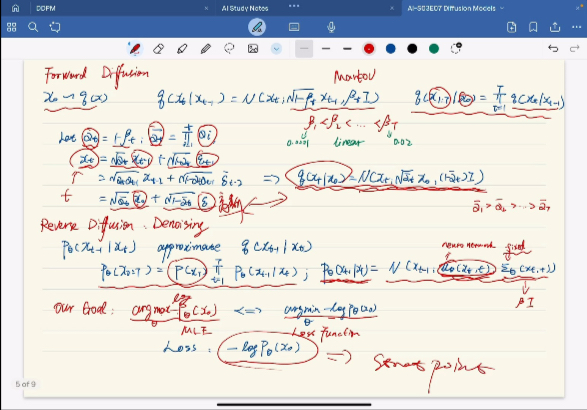 DDPM
AI Study Notes
AI-S03E07 Diffusion Models
Forward Diffusion
Markov
x₀ ~ q(x)  q(xₜ|xₜ₋₁) = N(xₜ; √(1-βₜ) xₜ₋₁, βₜI)  q(x₁:T|x₀) = ∏ₜ₌₁ᵀ q(xₜ|xₜ₋₁)
β₁<β₂< ... <βT
0.0001 linear 0.02
Let αₜ = 1-βₜ, ᾱₜ = ∏ αᵢ
xₜ = √αₜ xₜ₋₁ + √(1-αₜ)
= √αₜαₜ₋₁ xₜ₋₂ + √(1-αₜαₜ₋₁) ⇒ q(xₜ|x₀) = N(xₜ; √ᾱₜ x₀, (1-ᾱₜ)I)
t
= √ᾱₜ x₀ + √(1-ᾱₜ)
ᾱ₁ > ᾱ₂ > ... > ᾱT
Reverse Diffusion : Denoising
pθ(xₜ₋₁|xₜ) approximate q(xₜ₋₁|xₜ)
neural network fixed
pθ(x₀:T) = p(xT) ∏ₜ₌₁ᵀ pθ(xₜ₋₁|xₜ) ; N(xₜ₋₁; μθ(xₜ,t), Σθ(xₜ,t))
βI
log
Our Goal : argmax pθ(x₀) <=> argmin -log pθ(x₀)
θ θ
MLE Loss Function
Loss : -log Pθ(x₀) ⇒ Start point
5 of 9